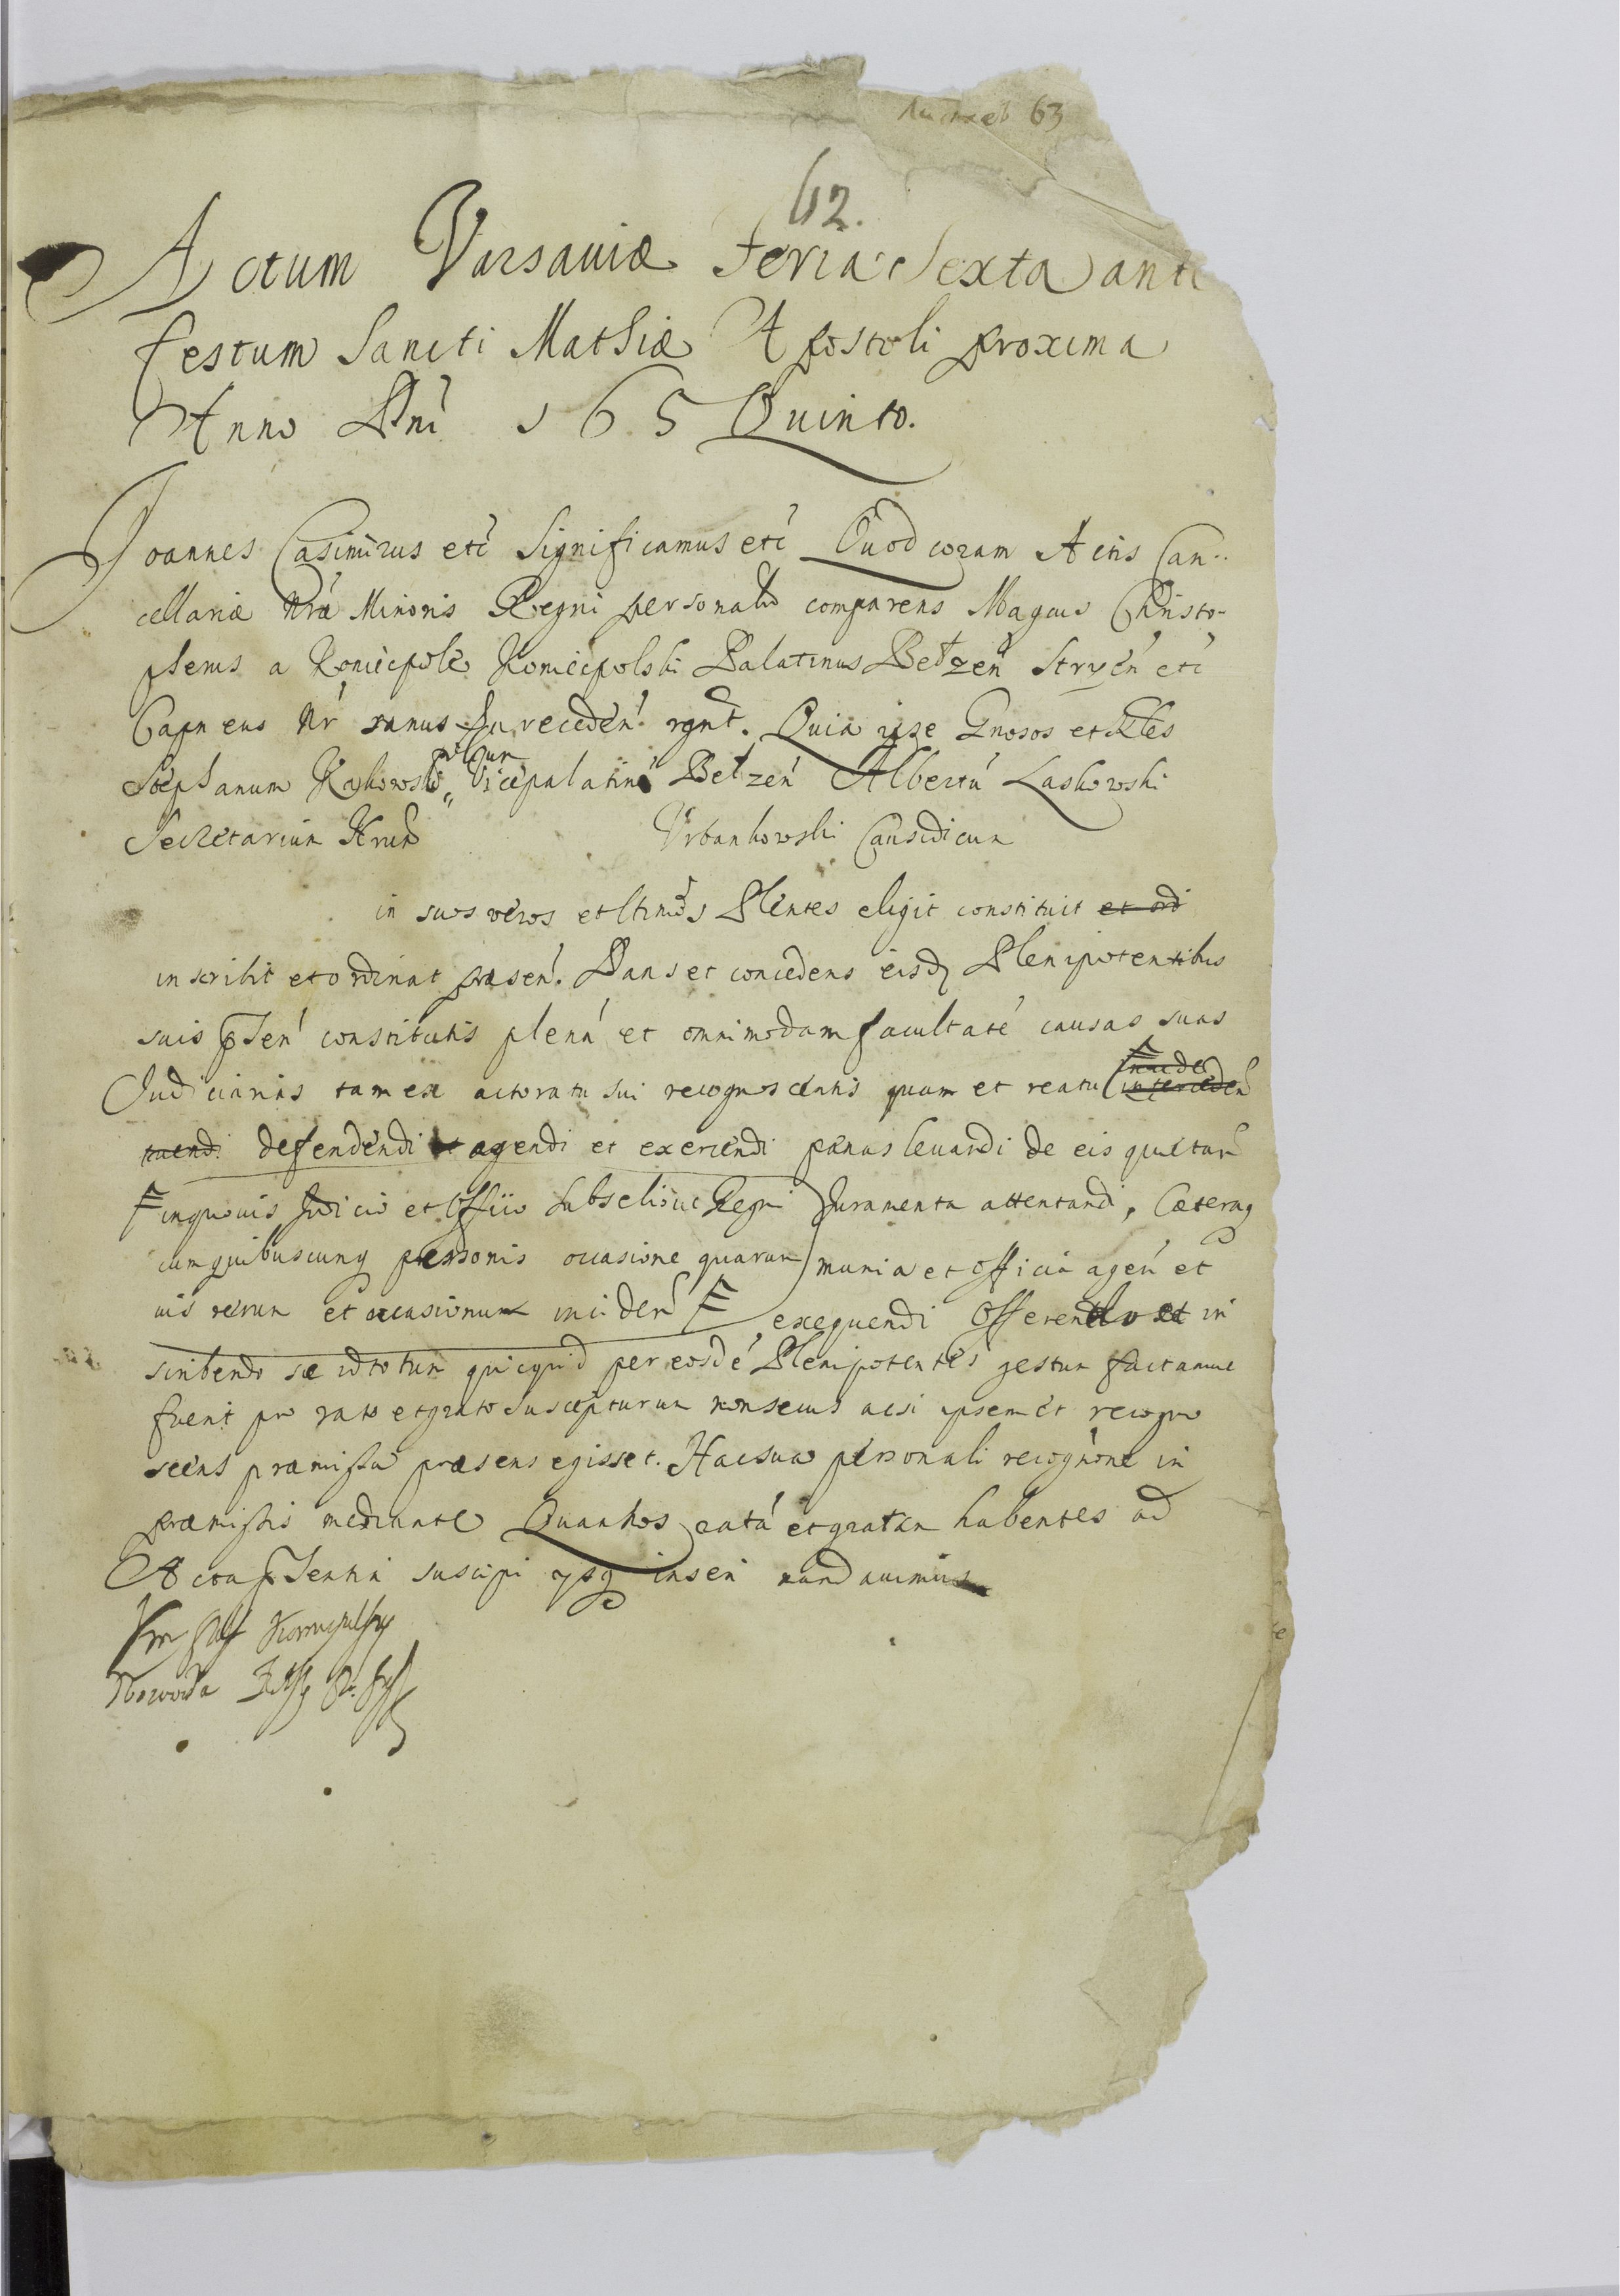 63
62.
Actum Varsaviæ Feria Sexta ante
festum Sancti Mathiæ Apostoli proxima
Anno Dni 165 Quinto.
Joannes Casimirus etc Significamus etc Quod coram Actis Can-
cellariæ Nræ Minoris Regni personalr comparens Magcus Christo-
pherus a Koniecpole Koniecpolski Palatinus Bełzen Stryen etc
Capneus Nr sanus Quia ipse Gnosos et
Stephanum Vicepalatinu Bełzen Albertu Laskowski
Secretarium Urbankowski Causidicum
in suos veros et ltimos Plentes eligit constituit et ordi
inscribit et ordinat præsen. Dans et concedens eisdq Plenipotentibus
suis pnsen constitutis plena et omnimodam facultate causas suas
Judiciarias tam ex actoratu sui recognoscentis quam et reatu interceden
tuendi defendendi et agendi et exercendi pænas levandi de eis quietan
inquovis Judicio et Officio Subseliovue Regni Juramenta attentandi, Cæteraq
cum quibuscunq personis occasione quarum munia et officia agen et
vis rerum et occasionum inciden exequendi Offerendo et in
scribendo se id totum quicquid per eosde Plenipotentes gestum factumve
fuerit pro rato et grato suscepturum non secus acsi ipsemet recogno
scens præmissa præsens egisset. Hac sua personali recognone in
præmissis mediante Quam nos rata et gratam habentes ad
Acta pnsentia suscipi ysq inseri mandavimus